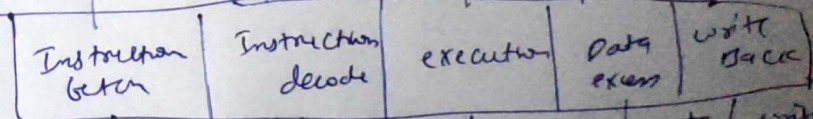 Instruction
fetch
Instruction
decode
execution
Data
exess
write
Back